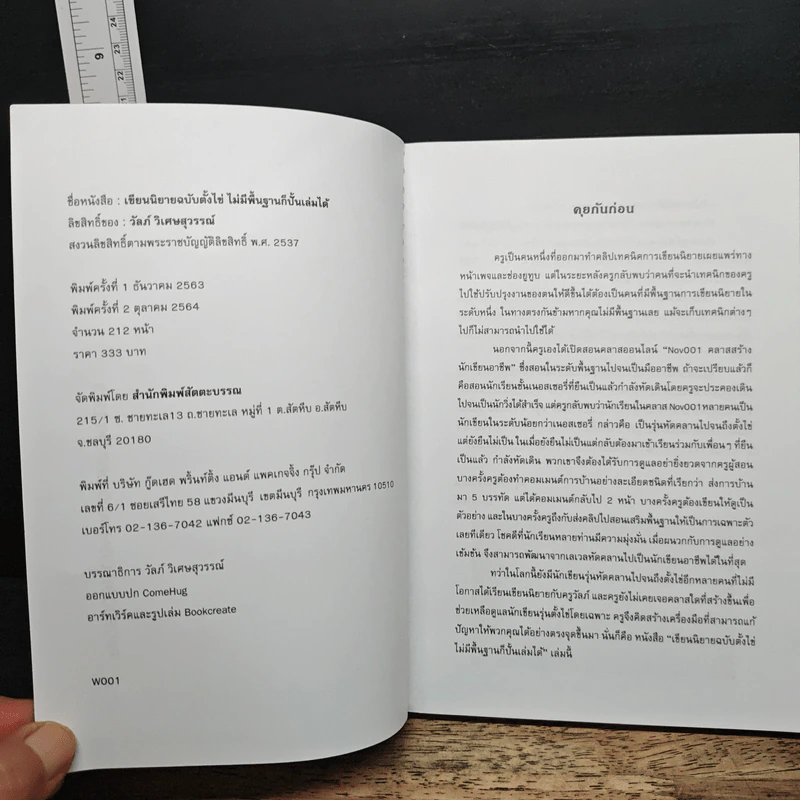 9
24
23
22
21
ชื่อหนังสือ : เขียนนิยายฉบับตั้งไข่ ไม่มีพื้นฐานก็ปั้นเล่มได้
ลิขสิทธิ์ของ : วัลภ์ วิเศษสุวรรณ์
สงวนลิขสิทธิ์ตามพระราชบัญญัติลิขสิทธิ์ พ.ศ. 2537
พิมพ์ครั้งที่ 1 ธันวาคม 2563
พิมพ์ครั้งที่ 2 ตุลาคม 2564
จำนวน 212 หน้า
ราคา 333 บาท
จัดพิมพ์โดย สำนักพิมพ์สัตตะบรรณ
215/1 ซ. ชายทะเล13 ถ.ชายทะเล หมู่ที่ 1 ต.สัตหีบ อ.สัตหีบ
จ.ชลบุรี 20180
พิมพ์ที่ บริษัท กู๊ดเฮด พริ้นท์ติ้ง แอนด์ แพคเกจจิ้ง กรุ๊ป จำกัด
เลขที่ 6/1 ซอยเสรีไทย 58 แขวงมีนบุรี เขตมีนบุรี กรุงเทพมหานคร 10510
เบอร์โทร 02-136-7042 แฟกซ์ 02-136-7043
บรรณาธิการ วัลภ์ วิเศษสุวรรณ์
ออกแบบปก ComeHug
อาร์ทเวิร์คและรูปเล่ม Bookcreate
W001
คุยกันก่อน
ครูเป็นคนหนึ่งที่ออกมาทำคลิปเทคนิคการเขียนนิยายเผยแพร่ทาง
หน้าเพจและช่องยูทูบ แต่ในระยะหลังครูกลับพบว่าคนที่จะนำเทคนิคของครู
ไปใช้ปรับปรุงงานของตนให้ดีขึ้นได้ต้องเป็นคนที่มีพื้นฐานการเขียนนิยายใน
ระดับหนึ่ง ในทางตรงกันข้ามหากคุณไม่มีพื้นฐานเลย แม้จะเก็บเทคนิคต่างๆ
ไปก็ไม่สามารถนำไปใช้ได้
นอกจากนี้ครูเองได้เปิดสอนคลาสออนไลน์ “Nov001 คลาสสร้าง
นักเขียนอาชีพ” ซึ่งสอนในระดับพื้นฐานไปจนเป็นมืออาชีพ ถ้าจะเปรียบแล้วก็
คือสอนนักเรียนชั้นเนอสเซอรี่ที่ยืนเป็นแล้วกำลังหัดเดินโดยครูจะประคองเดิน
ไปจนเป็นนักวิ่งได้สำเร็จ แต่ครูกลับพบว่านักเรียนในคลาส Nov001หลายคนเป็น
นักเขียนในระดับน้อยกว่าเนอสเซอรี่ กล่าวคือ เป็นรุ่นหัดคลานไปจนถึงตั้งไข่
แต่ยังยืนไม่เป็น ในเมื่อยังยืนไม่เป็นแต่กลับต้องมาเข้าเรียนร่วมกับเพื่อนๆ ที่ยืน
เป็นแล้ว กำลังหัดเดิน พวกเขาจึงต้องได้รับการดูแลอย่างยิ่งยวดจากครูผู้สอน
บางครั้งครูต้องทำคอมเมนต์การบ้านอย่างละเอียดชนิดที่เรียกว่า ส่งการบ้าน
มา 5 บรรทัด แต่ได้คอมเมนต์กลับไป 2 หน้า บางครั้งครูต้องเขียนให้ดูเป็น
ตัวอย่าง และในบางครั้งครูถึงกับส่งคลิปไปสอนเสริมพื้นฐานให้เป็นการเฉพาะตัว
เลยทีเดียว โชคดีที่นักเรียนหลายท่านมีความมุ่งมั่น เมื่อผนวกกับการดูแลอย่าง
เข้มข้น จึงสามารถพัฒนาจากเลเวลหัดคลานไปเป็นนักเขียนอาชีพได้ในที่สุด
ทว่าในโลกนี้ยังมีนักเขียนรุ่นหัดคลานไปจนถึงตั้งไข่อีกหลายคนที่ไม่มี
โอกาสได้เรียนเขียนนิยายกับครูวัลภ์ และครูยังไม่เคยเจอคลาสใดที่สร้างขึ้นเพื่อ
ช่วยเหลือดูแลนักเขียนรุ่นตั้งไข่โดยเฉพาะ ครูจึงคิดสร้างเครื่องมือที่สามารถแก้
ปัญหาให้พวกคุณได้อย่างตรงจุดขึ้นมา นั่นก็คือ หนังสือ “เขียนนิยายฉบับตั้งไข่
ไม่มีพื้นฐานก็ปั้นเล่มได้” เล่มนี้